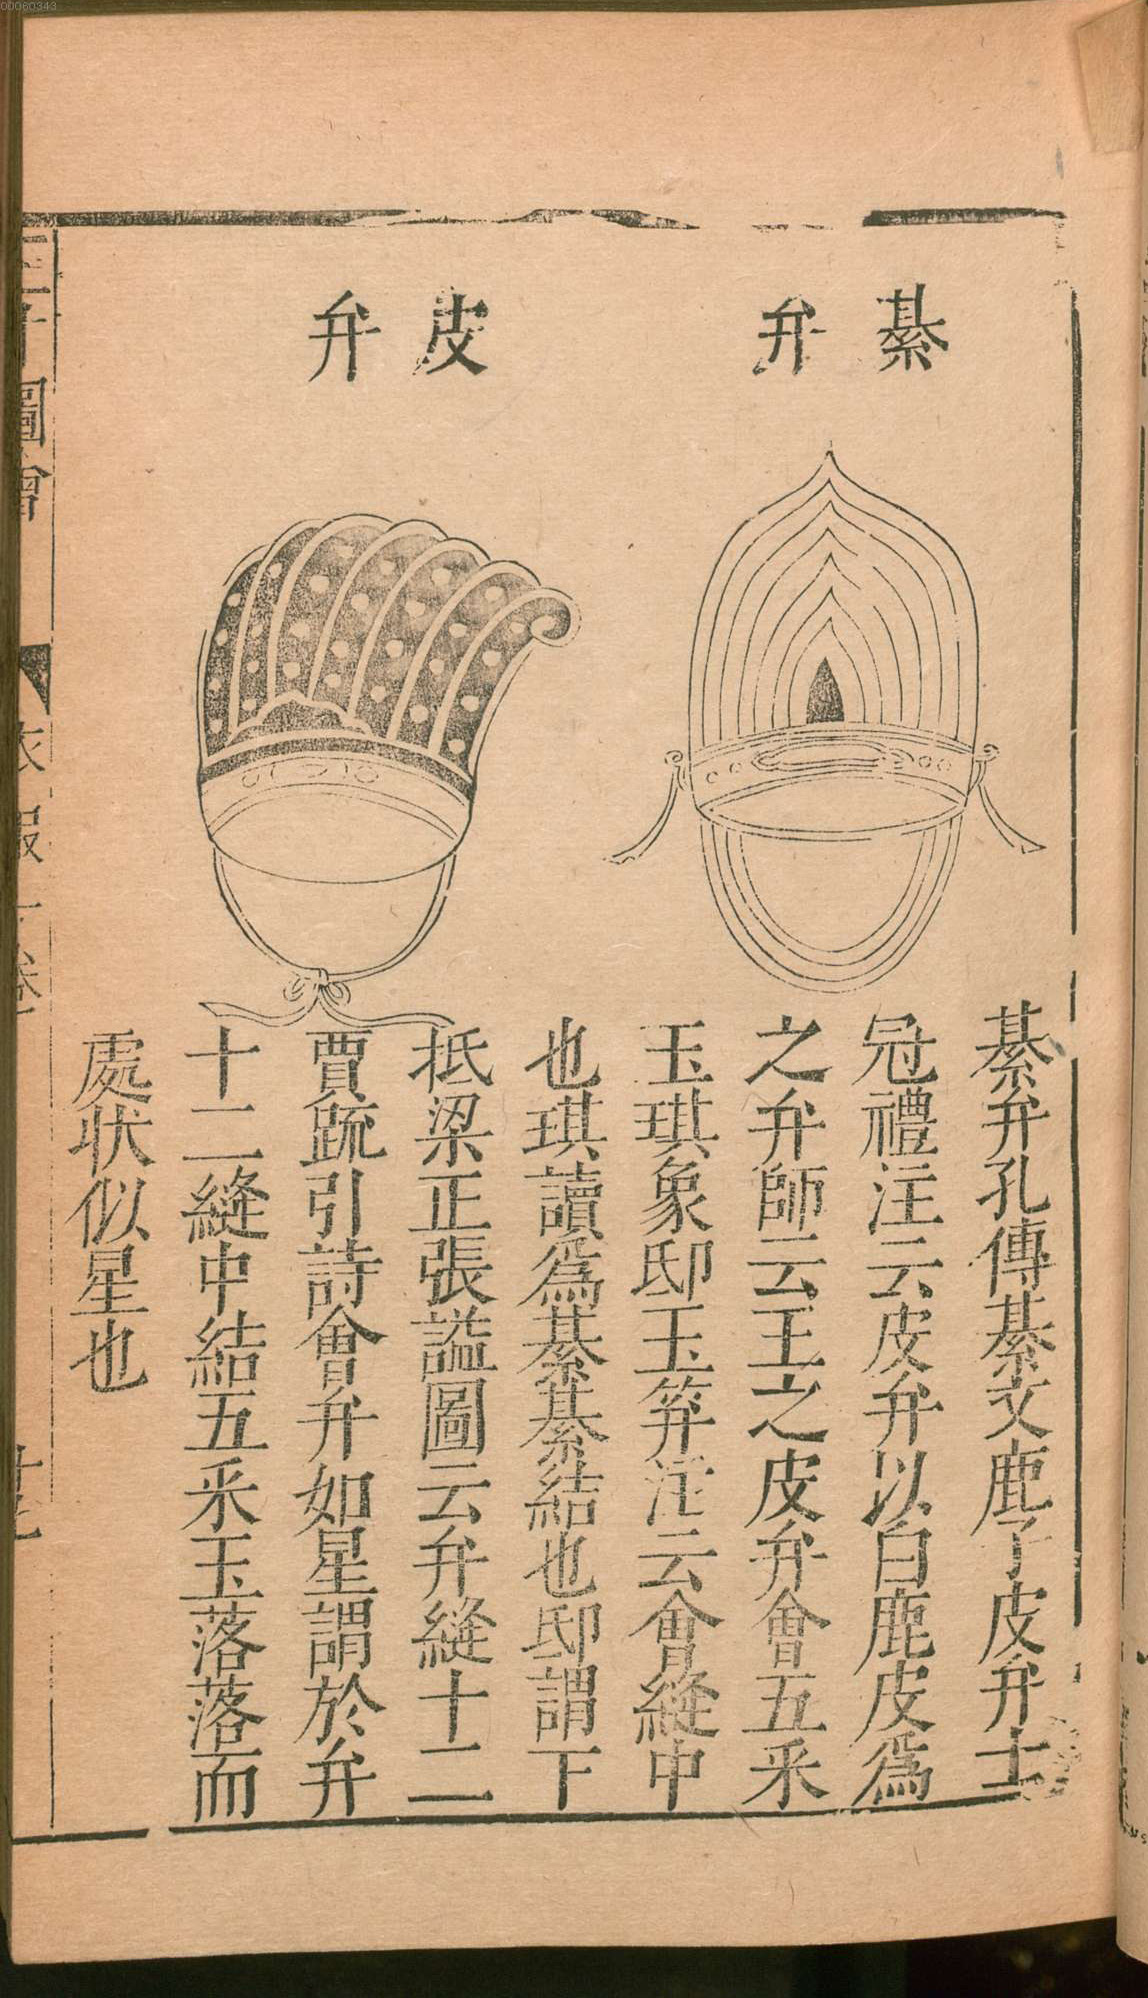 綦弁
皮弁
綦弁孔傳綦文鹿子皮弁士
冠禮注云皮弁以白鹿皮爲
之弁師云王之皮弁會五采
玉琪象邸玉筓注云會縫中
也琪讀爲綦綦結也邸謂下
抵梁正張謚圖云弁縫十二
賈䟽引詩會弁如星謂於弁
十二縫中結五采玉落落而
處狀似星也
圖會
衣服一卷
00060343